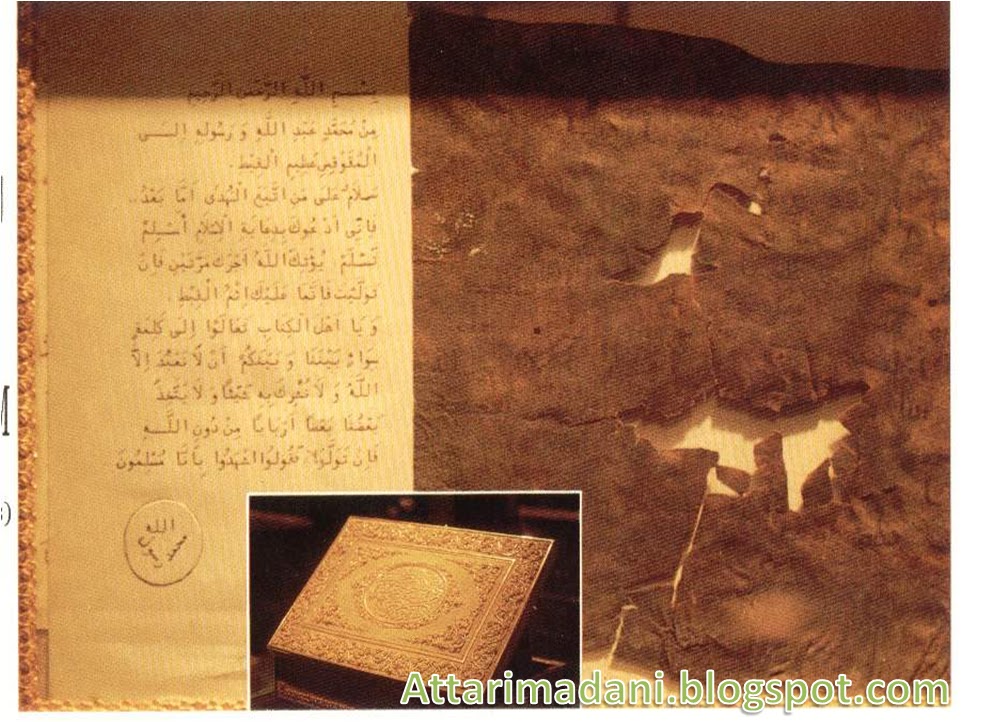 بسم الله الرحمن الرحيم
مِنْ مُحَمَّدٍ عَبْدِ اللَّهِ وَ رَسُولِهِ إلــى
الْمُقَوْقِسِ عَظِيمِ الْقِبْط .
سَلَامٌ عَلَى مَنِ اتَّبَعَ الْهُدَى أمَّا بَعْدُ..
فَإنِّى أدْعُوكَ بِدِعَايَةِ الْاسْلَامِ أسْـلِمْ
تَسْلَمْ يُؤْتِكَ اللَّهُ أجْرَكَ مَرَّتَيْنِ فَإنْ
تَوَلَّيْتَ فَإنَّمَا عَلَيْكَ اثْمُ الْقِبْط .
وَ يَا أهْلَ الْكِتَابِ تَعَالَوْا إلَى كَلِمَةٍ
سَوَاءٍ بَيْنَنَا وَ بَيْنَكُمْ أنْ لَّا نَعْبُدَ إلَّا
اللَّهَ وَ لَا نُشْرِكَ بِهِ شَيْئًا وَ لَا يَتَّخِذَ
بَعْضُنَا بَعْضًا أرْبَابًا مِنْ دُونِ اللَّــهِ
فَإنْ تَوَلَّوْا فَقُولُوا اشْهَدُوا بِأنَّا مُسْلِمُونَ
الله
محمد
Attarimadani.blogspot.com